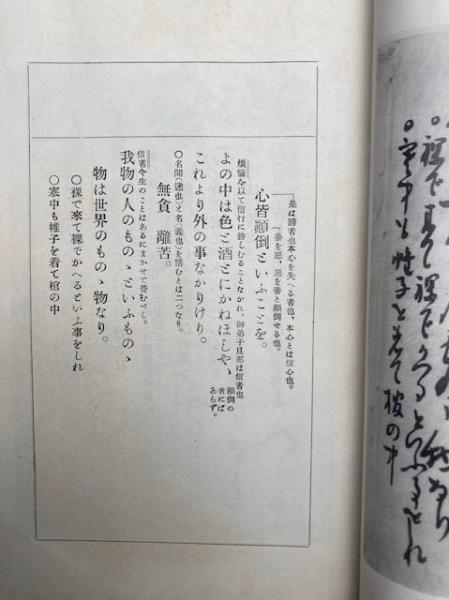 是は謗者也本心を失へる者也、本心とは信心也。
善を惡、惡を善と顚倒せる也。
心皆顚倒といふことを。
煩惱を以て信行に勝しむることなかれ、御弟子旦那は信者也
よの中は色と酒とにかねほしや、
顚倒の
者にば
あらず。
これより外の事なかりけり。
○名聞(速也)と名(義也)を惜むとは二つなり。
無貪 離苦。
信者今生のことはあるにまかせて營むべし。
我物の人のものゝといふものゝ
物は世界のものゝ物なり。
○裸で來て裸でかへるといふ事をしれ
○寒中も帷子を着て棺の中
○裸で来て裸でかへるといふ事をしれ
○寒中も帷子を着て棺の中